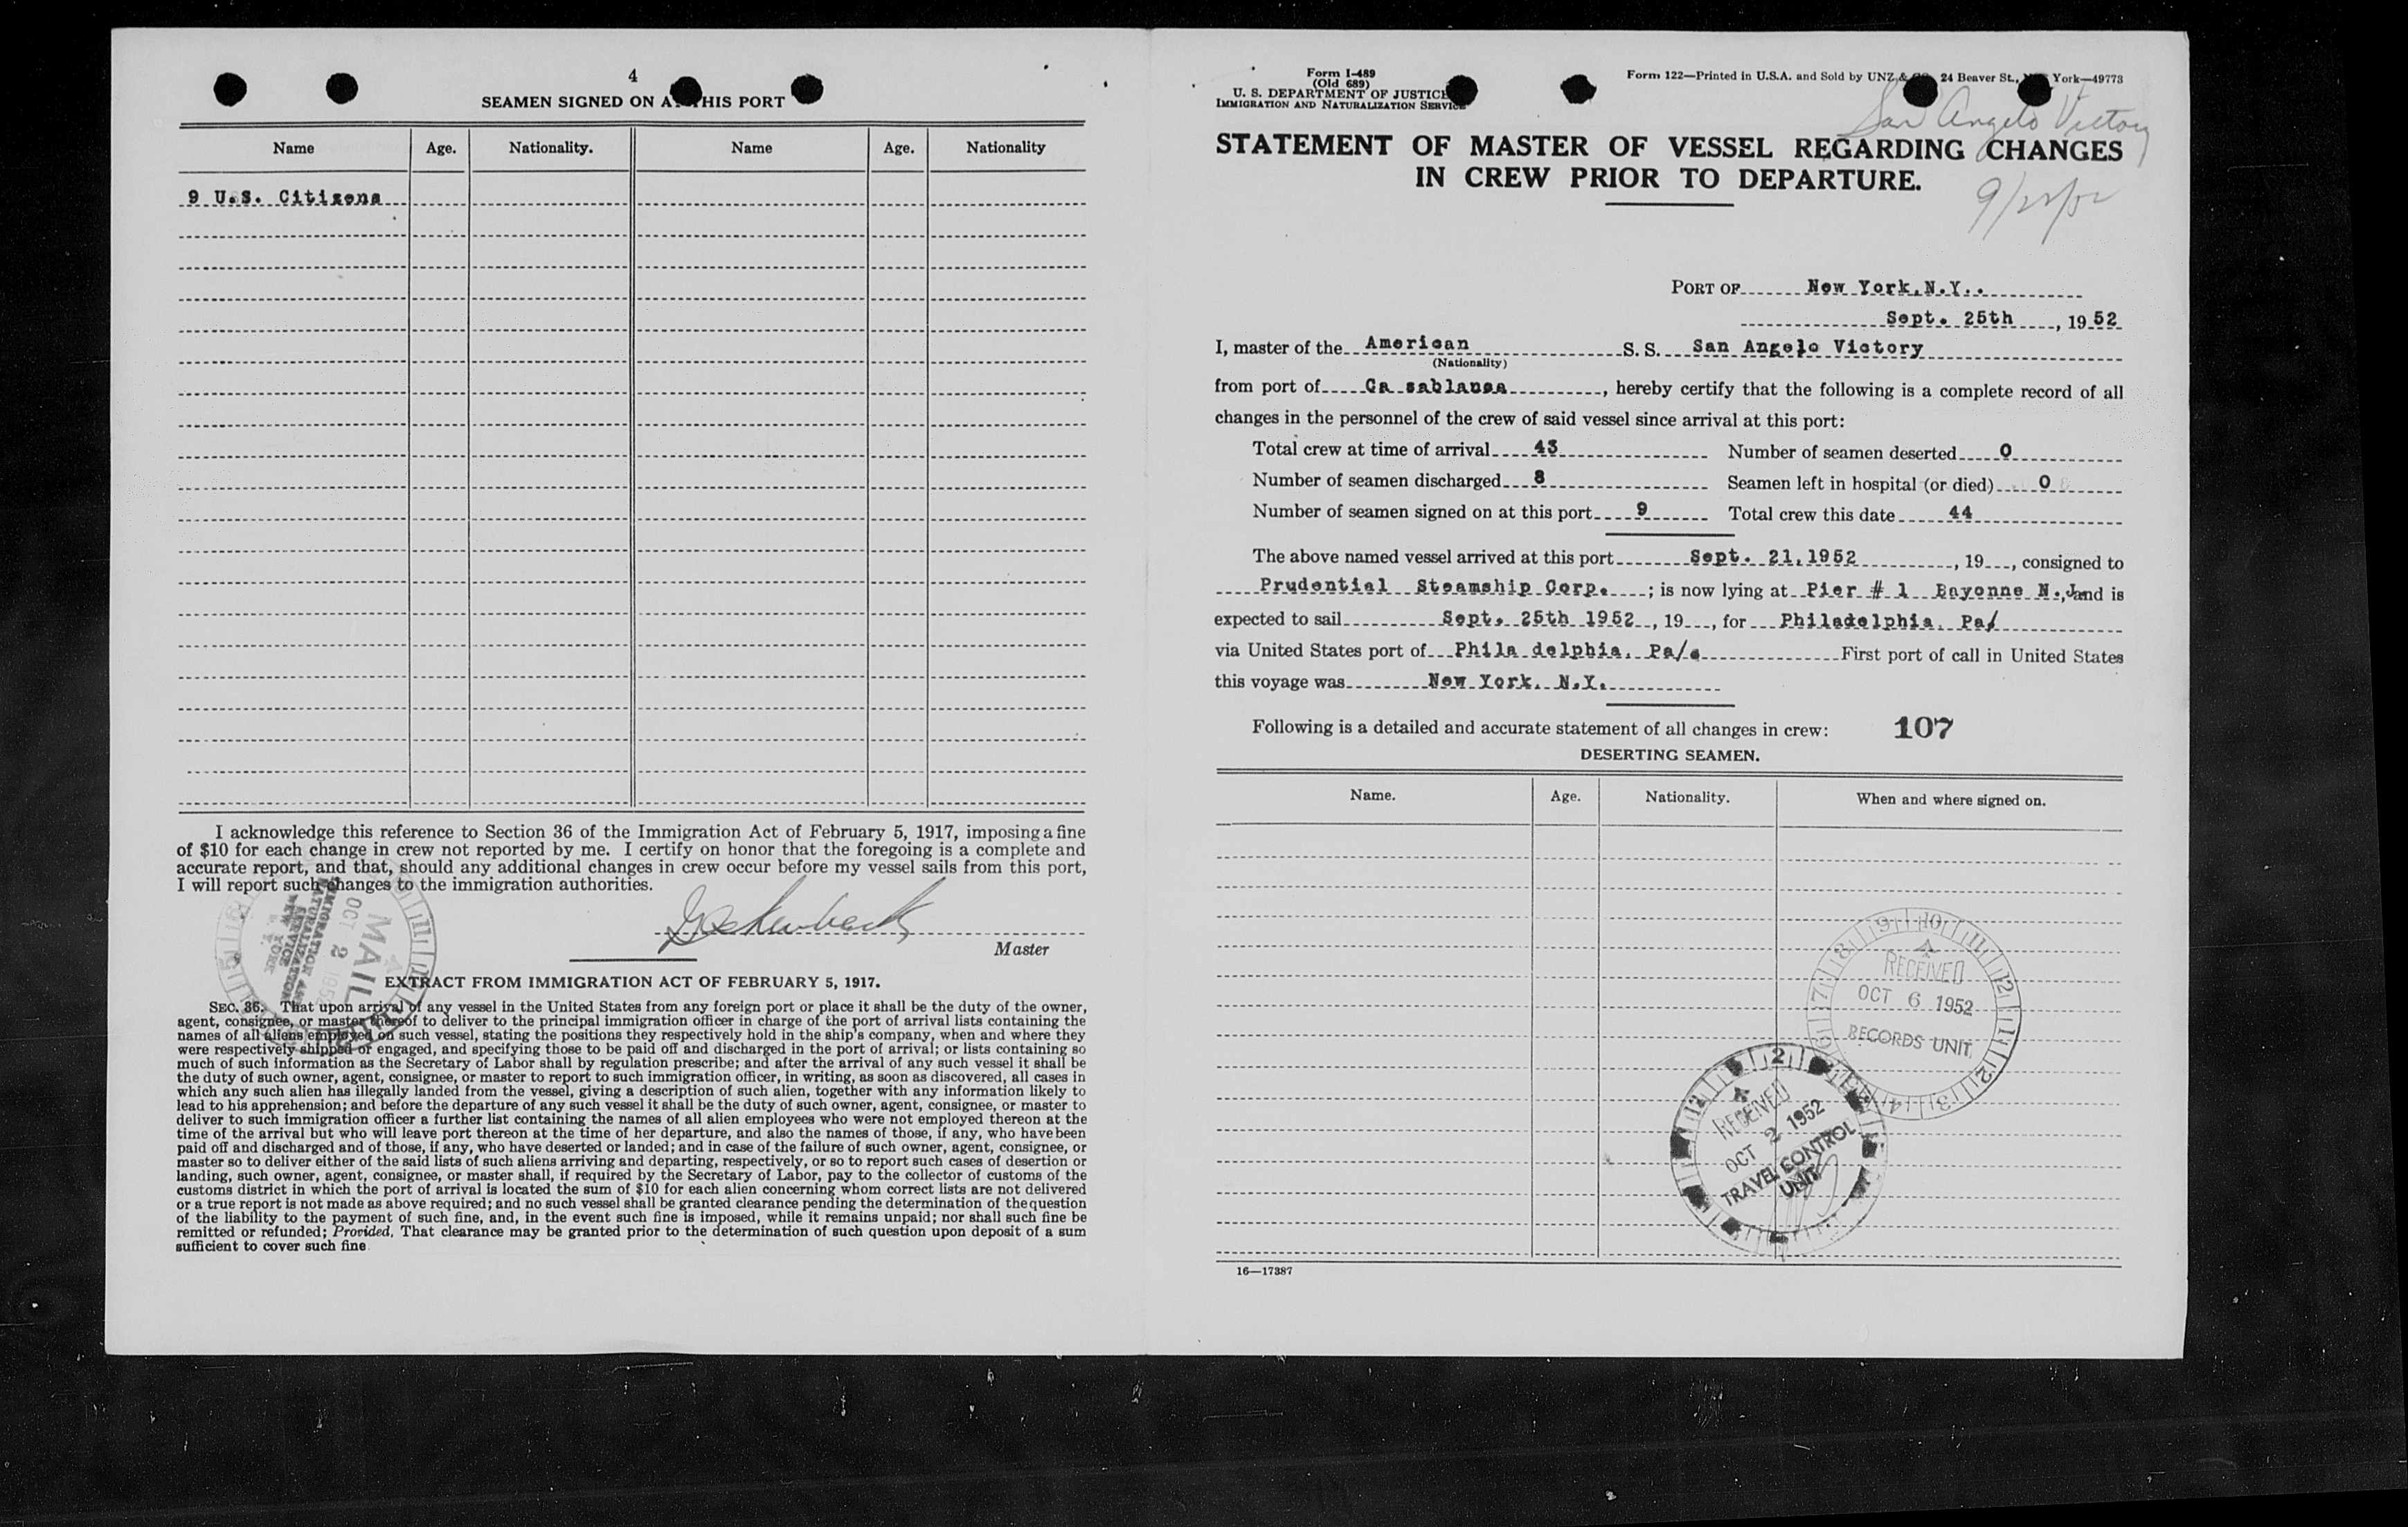 4
SEAMEN SIGNED ON AT THIS PORT
Name Age. Nationality. Name Age. Nationality
9 U.S. Citizens
I acknowledge this reference to Section 36 of the Immigration Act of February 5, 1917, imposing a fine
of $10 for each change in crew not reported by me. I certify on honor that the foregoing is a complete and
accurate report, and that, should any additional changes in crew occur before my vessel sails from this port,
I will report such changes to the immigration authorities.
Master
MAIL
OCT 2 1952
IMMIGRATION AND
NATURALIZATION
SERVICE
NEW YORK
N. Y.
EXTRACT FROM IMMIGRATION ACT OF FEBRUARY 5, 1917.
SEC. 36. That upon arrival of any vessel in the United States from any foreign port or place it shall be the duty of the owner,
agent, consignee, or master thereof to deliver to the principal immigration officer in charge of the port of arrival lists containing the
names of all aliens employed on such vessel, stating the positions they respectively hold in the ship's company, when and where they
were respectively shipped or engaged, and specifying those to be paid off and discharged in the port of arrival; or lists containing so
much of such information as the Secretary of Labor shall by regulation prescribe; and after the arrival of any such vessel it shall be
the duty of such owner, agent, consignee, or master to report to such immigration officer, in writing, as soon as discovered, all cases in
which any such alien has illegally landed from the vessel, giving a description of such alien, together with any information likely to
lead to his apprehension; and before the departure of any such vessel it shall be the duty of such owner, agent, consignee, or master to
deliver to such immigration officer a further list containing the names of all alien employees who were not employed thereon at the
time of the arrival but who will leave port thereon at the time of her departure, and also the names of those, if any, who have been
paid off and discharged and of those, if any, who have deserted or landed; and in case of the failure of such owner, agent, consignee, or
master so to deliver either of the said lists of such aliens arriving and departing, respectively, or so to report such cases of desertion or
landing, such owner, agent, consignee, or master shall, if required by the Secretary of Labor, pay to the collector of customs of the
customs district in which the port of arrival is located the sum of $10 for each alien concerning whom correct lists are not delivered
or a true report is not made as above required; and no such vessel shall be granted clearance pending the determination of the question
of the liability to the payment of such fine, and, in the event such fine is imposed, while it remains unpaid; nor shall such fine be
remitted or refunded; Provided, That clearance may be granted prior to the determination of such question upon deposit of a sum
sufficient to cover such fine
Form I-489
(Old 689)
U. S. DEPARTMENT OF JUSTICE
IMMIGRATION AND NATURALIZATION SERVICE
Form 122—Printed in U.S.A. and Sold by UNZ & CO. 24 Beaver St., New York—49773
San Angelo Victory
STATEMENT OF MASTER OF VESSEL REGARDING CHANGES
IN CREW PRIOR TO DEPARTURE.
PORT OF New York,N.Y..
Sept. 25th, 1952
I, master of the American S. S. San Angelo Victory
(Nationality)
from port of Ca sablanca, hereby certify that the following is a complete record of all
changes in the personnel of the crew of said vessel since arrival at this port:
Total crew at time of arrival 43 Number of seamen deserted 0
Number of seamen discharged 8 Seamen left in hospital (or died) 0
Number of seamen signed on at this port 9 Total crew this date 44
The above named vessel arrived at this port Sept. 21,1952, 19, consigned to
Prudential Steamship Corp. ; is now lying at Pier # 1 Bayonne N.,J. and is
expected to sail Sept. 25th 1952, 19, for Philadelphia, Pa/
via United States port of Phila delphia, Pa/. First port of call in United States
this voyage was New York, N.Y.
Following is a detailed and accurate statement of all changes in crew: 107
DESERTING SEAMEN.
Name. Age. Nationality. When and where signed on.
RECEIVED
OCT 6 1952
RECORDS UNIT
RECEIVED
OCT 2 1952
TRAVEL CONTROL
UNIT
16—17387